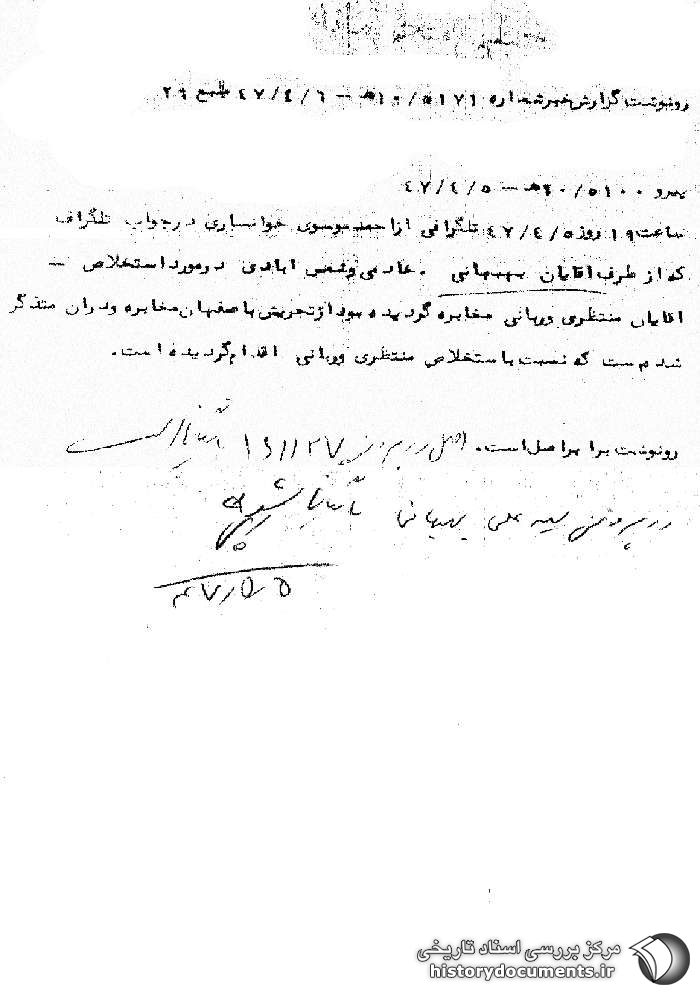 رونوشت گزارش خبر شماره ۱۰/۵۱۷۱ه‍ – ۴۷/۴/۶ طبع ۲۹
پیرو ۲۰/۵۱۰۰ه‍ – ۴۷/۴/۵
ساعت ۱۹ روز ۴۷/۴/۵ تلگرافی از احمد موسوی خوانساری در جواب تلگراف
که از طرف آقایان بهبهانی . خادمی و شمس ابادی در مورد استخلاص –
اقایان منتظری و ربانی مخابره گردیده بود از تجریش باصفهان مخابره و در ان متذکر
شده است که نسبت باستخلاص منتظری و ربانی اقدام گردیده است.
رونوشت برابر اصل است. اصل در پرونده ۱۶۱۱۲۷ بایگانی است
در پرونده سید علی بهبهانی بایگانی شود
۴۷/۵/۵
مرکز بررسی اسناد تاریخی
historydocuments.ir